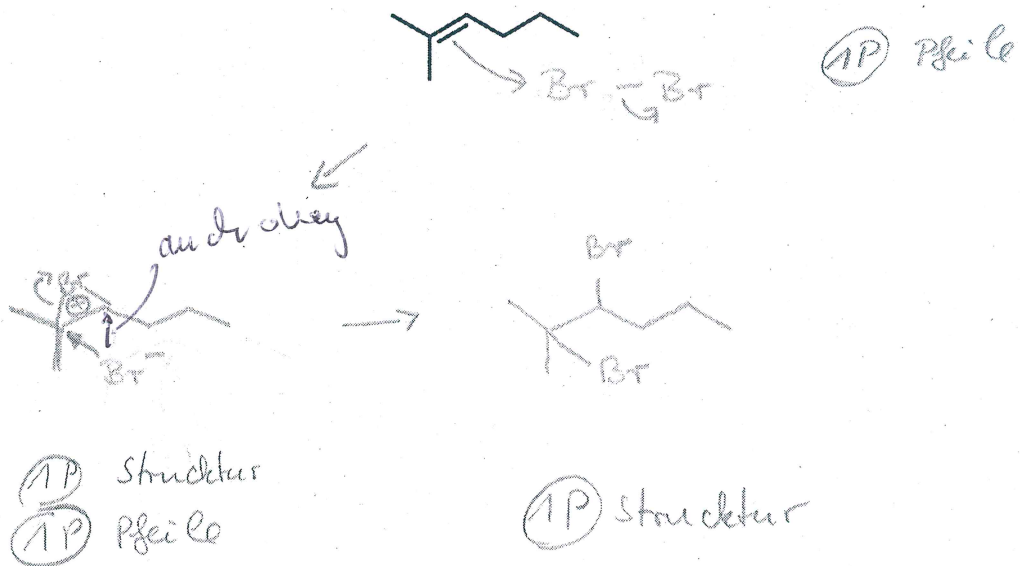 Br - Br
1P Pfeile
auch okay
Br
⊕
Br⁻
Br
Br
1P Struktur
1P Pfeile
1P Struktur